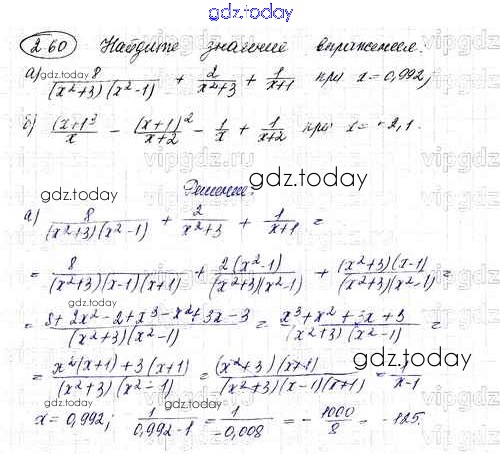 gdz.today
260 Найдите значение выражения:
а) 8/((x²+3)(x²-1)) + 2/(x²+3) + 1/(x+1) при x=0,992;
gdz.today
б) (x+1)³/x - (x+1)²/(x+2) - 1/x + 1/(x+2) при x=-2,1.
gdz.today
Решение:
gdz.today
а) 8/((x²+3)(x²-1)) + 2/(x²+3) + 1/(x+1) =
= 8/((x²+3)(x-1)(x+1)) + 2(x²-1)/((x²+3)(x²-1)) + (x²+3)(x-1)/((x²+3)(x²-1)) =
gdz.today
= (8+2x²-2+x³-x²+3x-3)/((x²+3)(x²-1)) = (x³+x²+3x+3)/((x²+3)(x²-1)) =
= (x²(x+1)+3(x+1))/((x²+3)(x²-1)) = (x²+3)(x+1)/((x²+3)(x-1)(x+1)) = 1/(x-1)
gdz.today
x=0,992; 1/(0,992-1) = 1/(-0,008) = -1000/8 = -125.
gdz.today